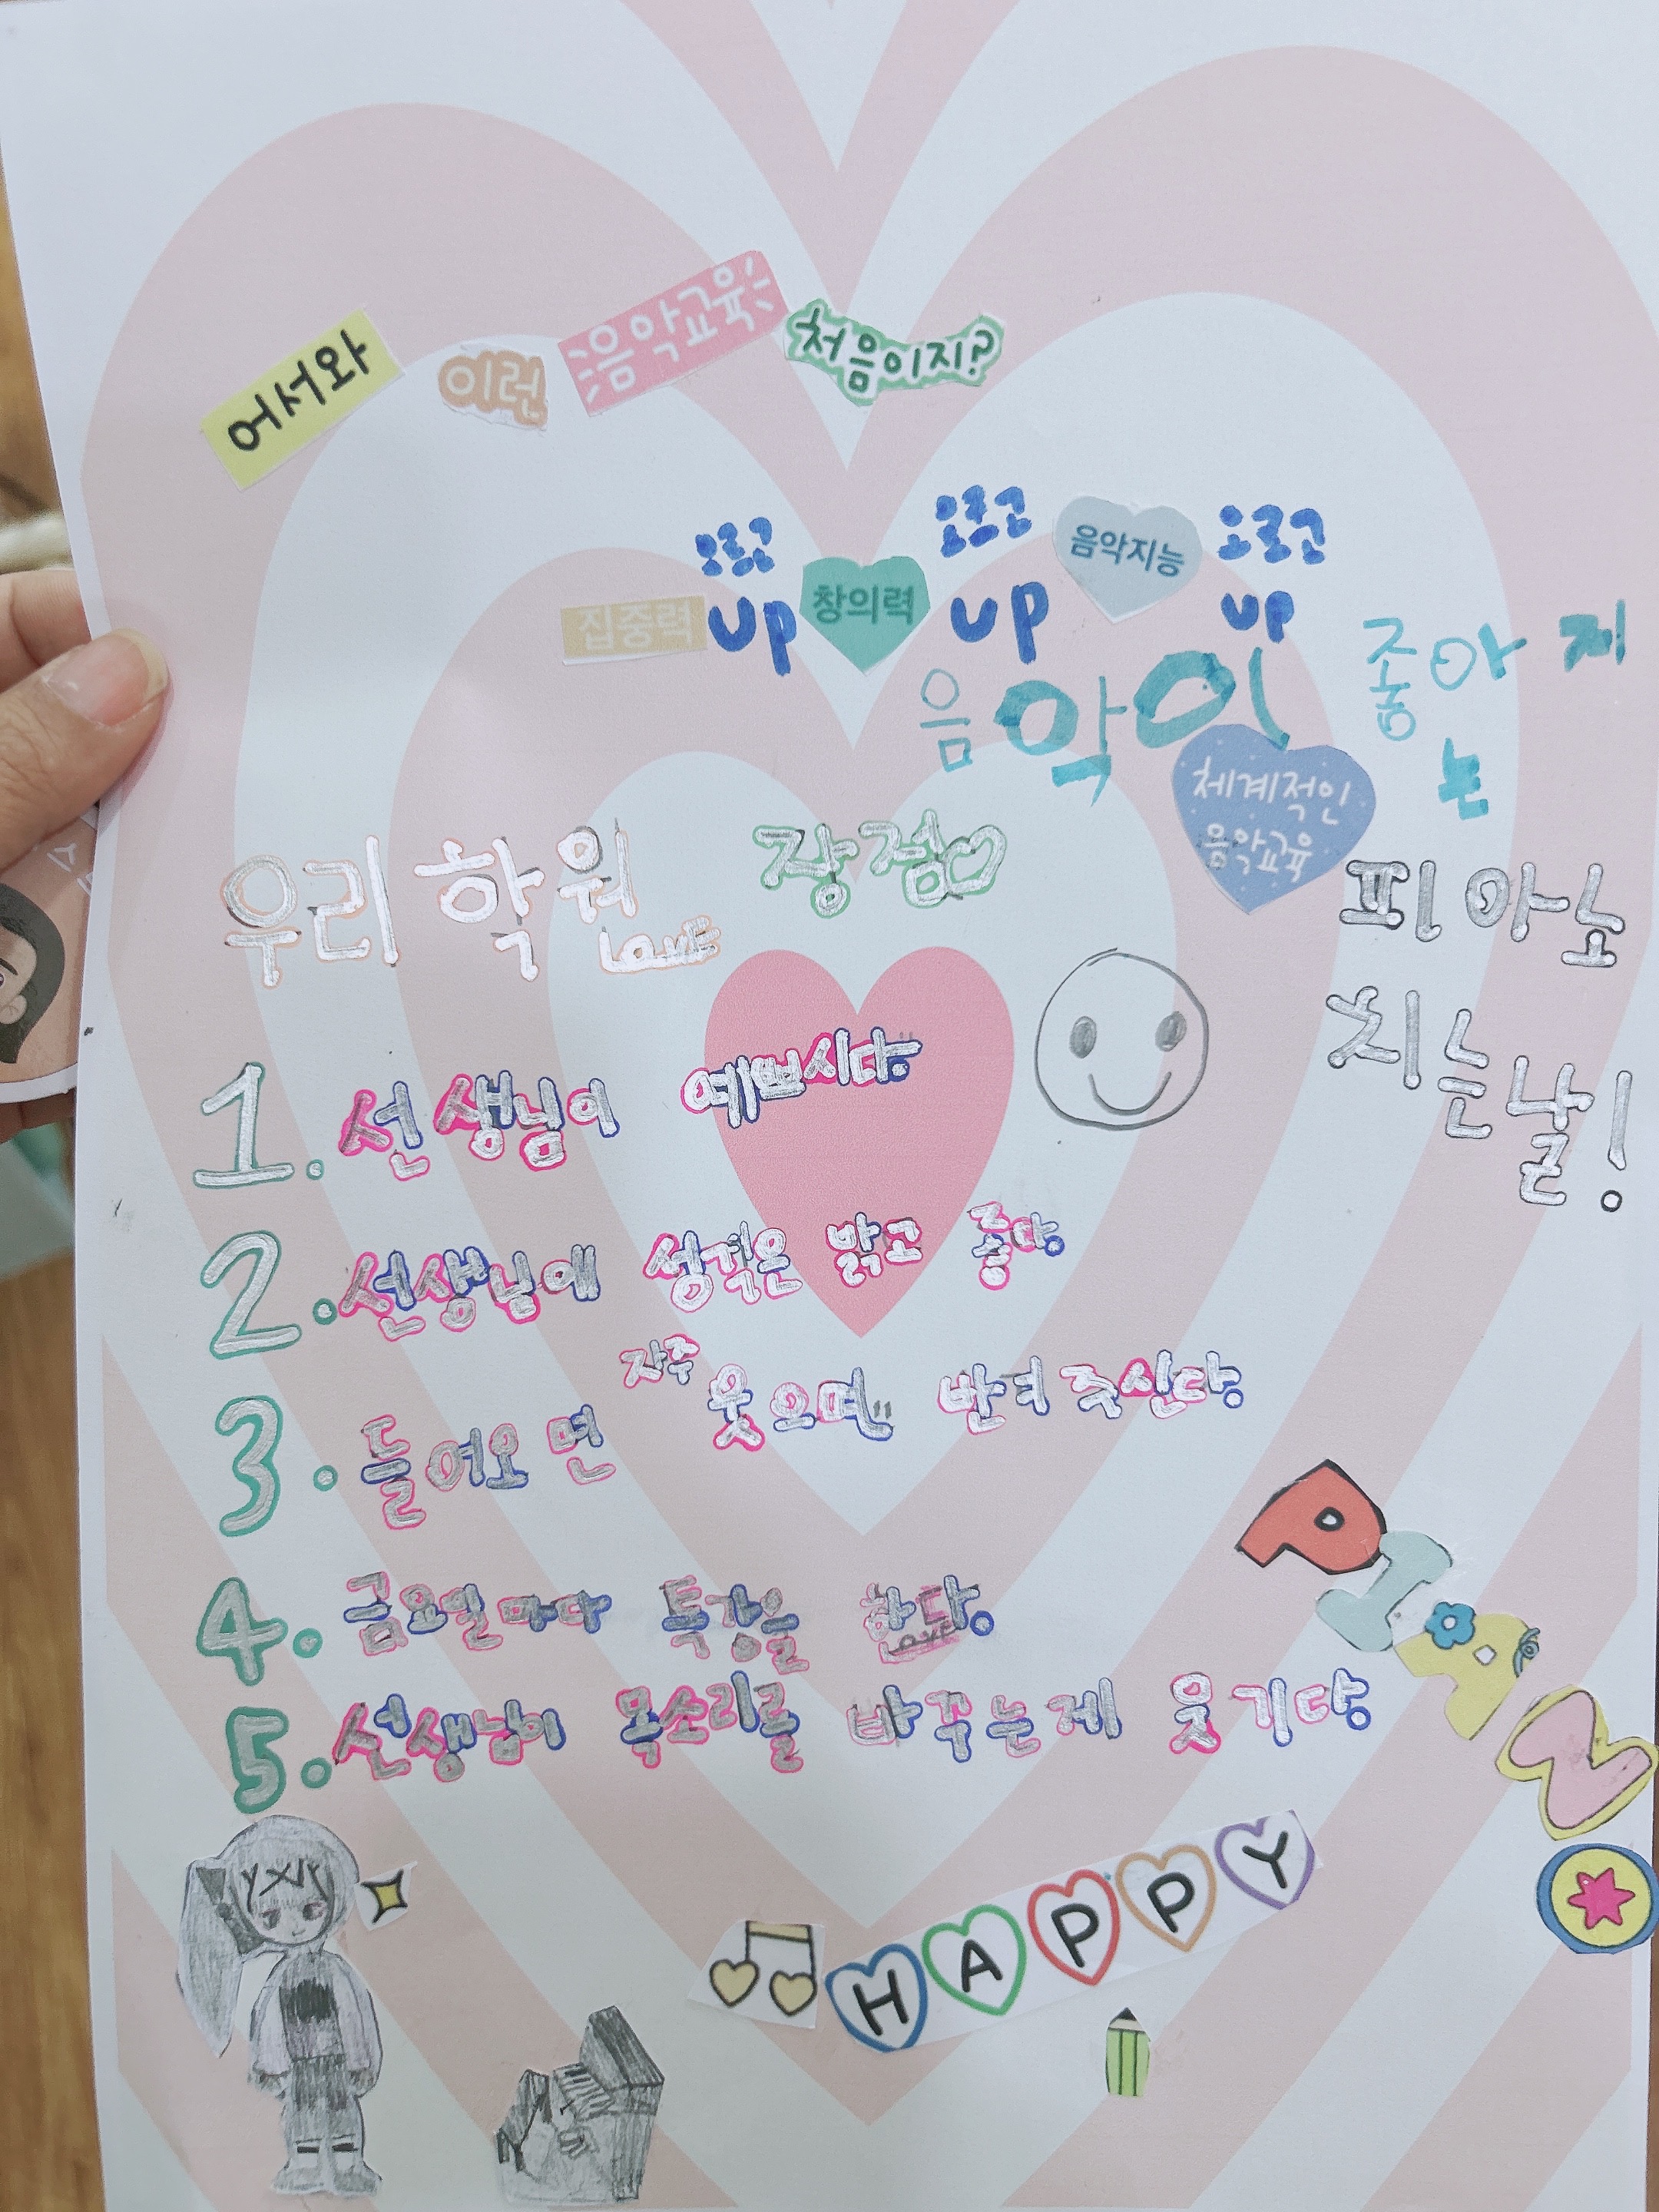 어서와 이런 음악교육 처음이지?
오르고 오르고 음악지능 오르고
집중력 up 창의력 up up
음악이 좋아지
체계적인 는
음악교육
우리 학원 장점♡
Love
피아노
치는날!
1. 선생님이 예쁘시다.
2. 선생님에 성격은 밝고 좋다.
3. 들어오면 자주 웃으며 반겨 주신다.
4. 금요일마다 특강을 한다.
Love
5. 선생님이 목소리를 바꾸는게 웃기다.
PIANO
HAPPY